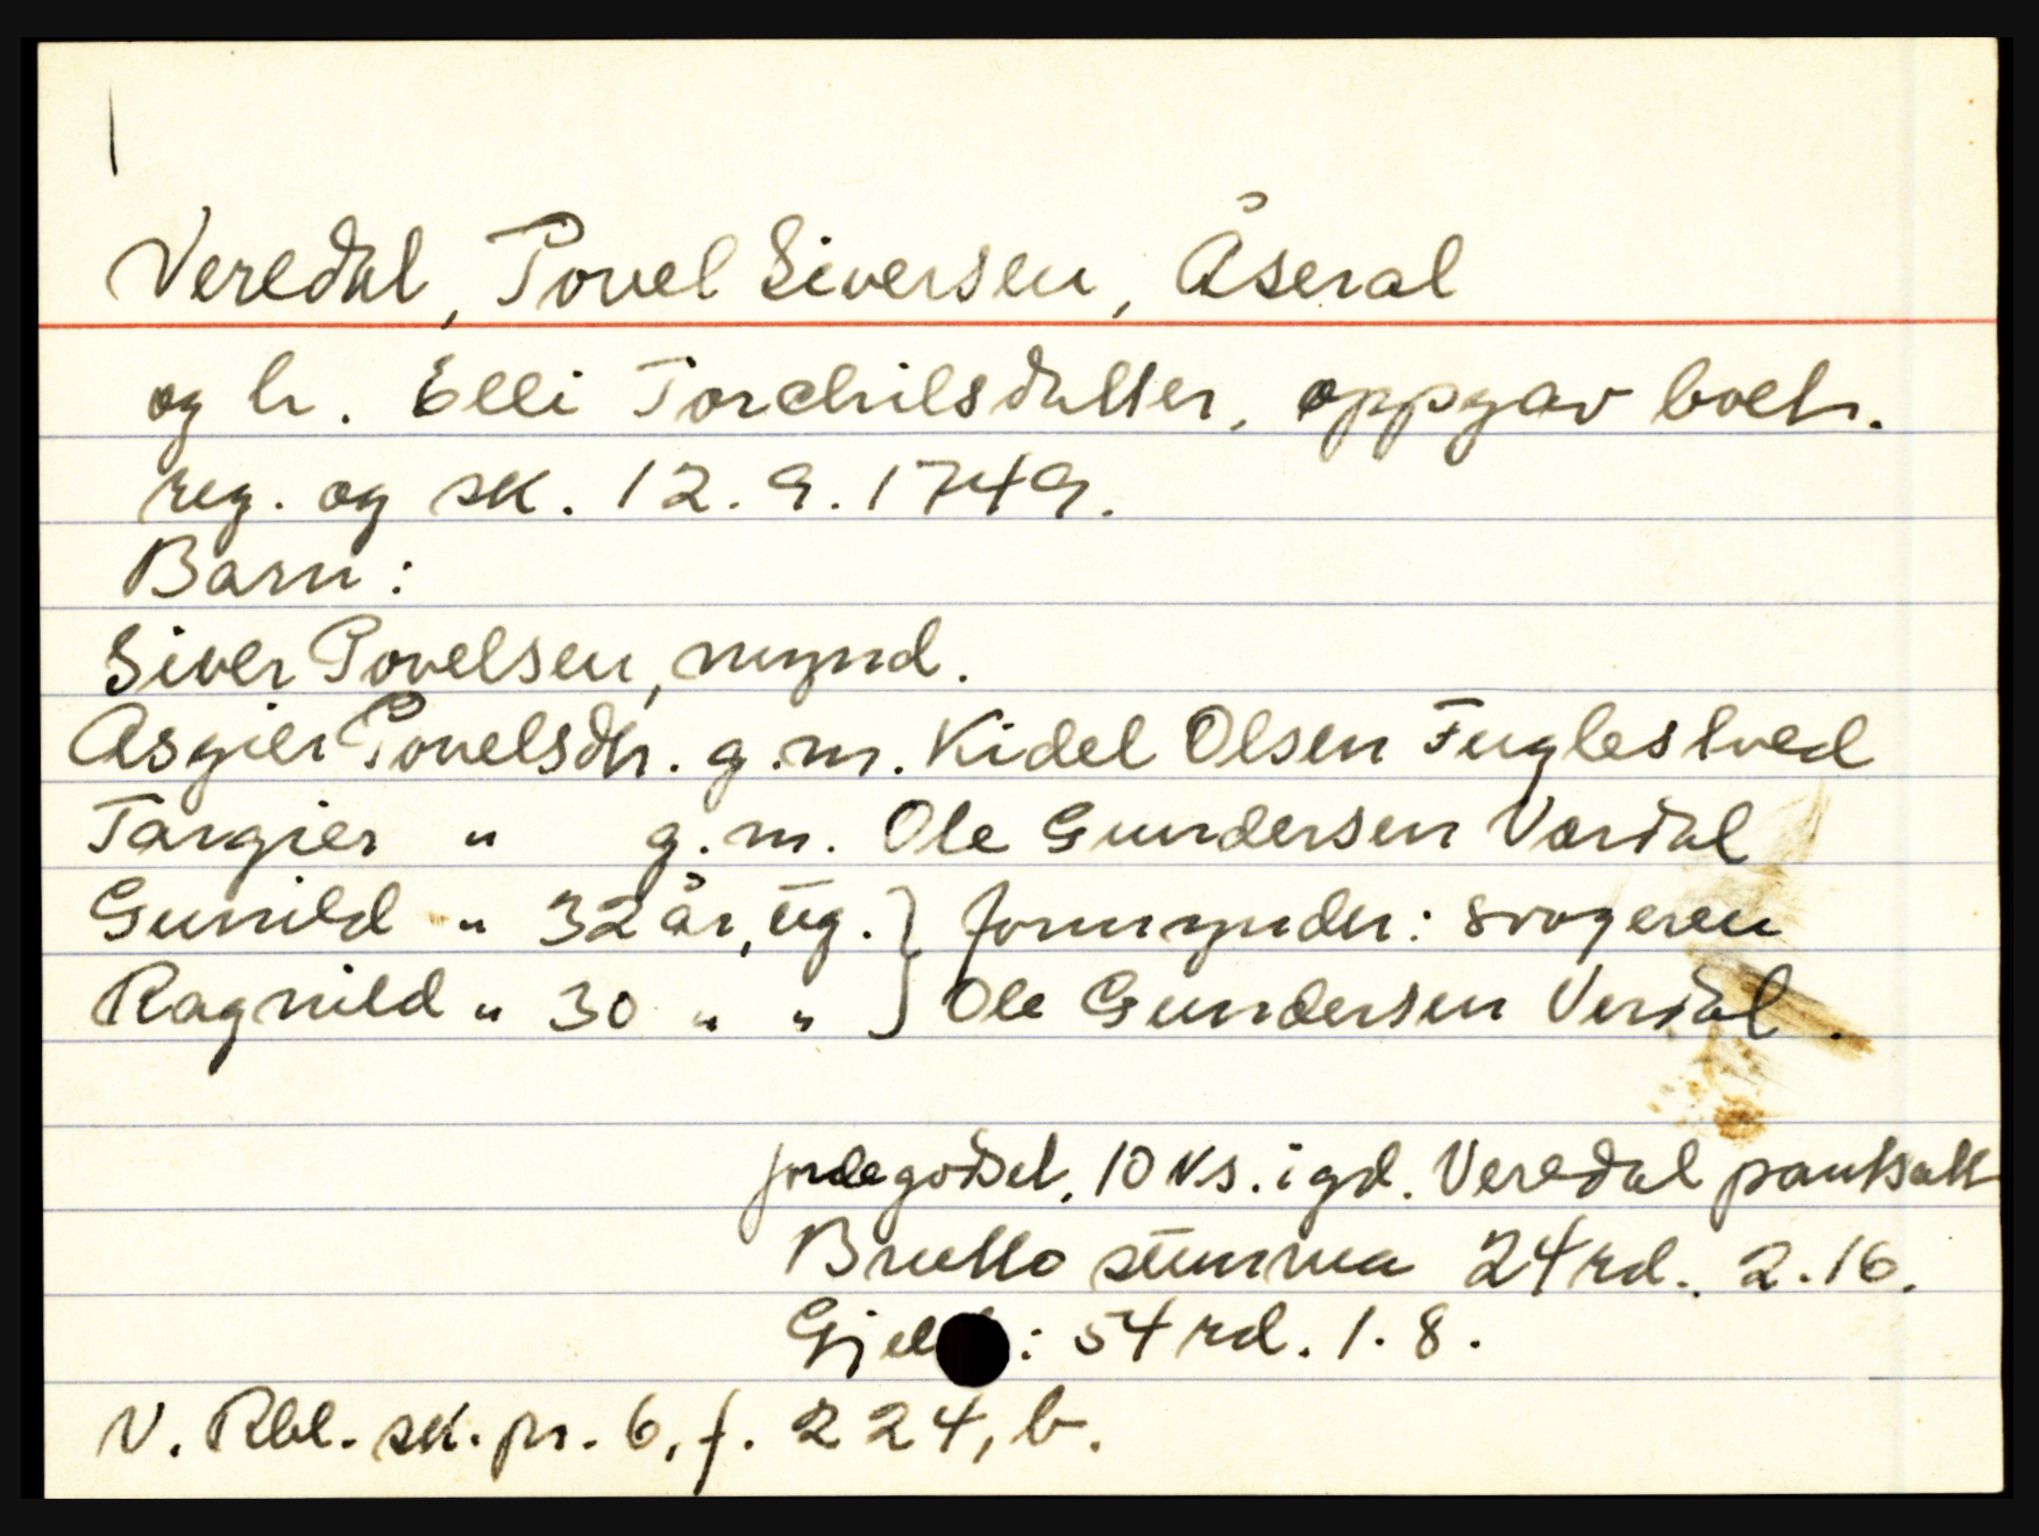 Veredal, Povel Siversen, Åseral
og h. Elli Torchilsdatter, oppgav boets.
reg. og sk. 12.9.1749.
Barn:
Siver Povelsen, mynd.
Asgier Povelsdtr. g.m. Kidel Olsen Fuglestved
Targier " g.m. Ole Gundersen Vardal
Gunild " 32 år, ug. } formynder: svogeren
Ragnild " 30 " " } Ole Gundersen Verdal.
jordegodset, 10 ks. i gd. Veredal pantsatt
Brutto summa 24 rd. 2.16.
Gjel : 54 rd. 1.8.
V. Rbl. sk. pr. 6, f. 224, b.